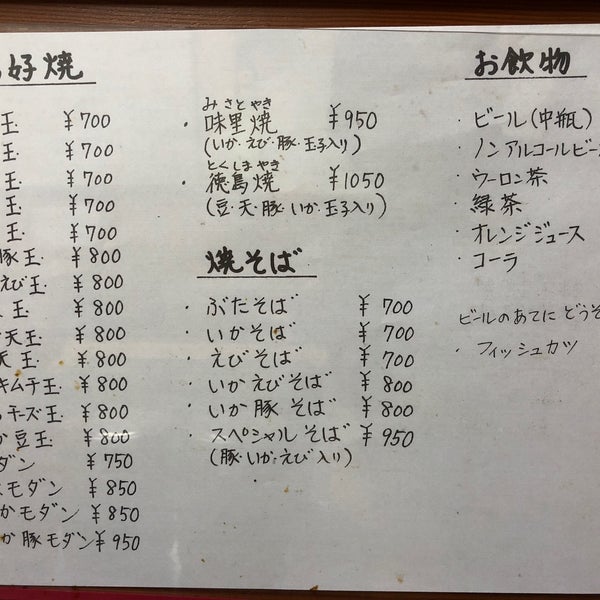 好焼
玉 ¥700
玉 ¥700
玉 ¥700
玉 ¥700
玉 ¥700
豚玉 ¥800
えび玉 ¥800
玉 ¥800
天玉 ¥800
天玉 ¥800
キムチ玉 ¥800
チーズ玉 ¥800
豆玉 ¥800
ダン ¥750
モダン ¥850
かモダン ¥850
豚モダン ¥950
みさとやき
・味里焼 ¥950
(いか・えび・豚・玉子入り)
とくしまやき
・徳島焼 ¥1050
(豆・天・豚・いか・玉子入り)
焼そば
・ぶたそば ¥700
・いかそば ¥700
・えびそば ¥700
・いかえびそば ¥800
・いか豚そば ¥800
・スペシャルそば ¥950
(豚・いか・えび入り)
お飲物
・ビール(中瓶)
・ノンアルコールビー
・ウーロン茶
・緑茶
・オレンジジュース
・コーラ
ビールのあてにどうぞ
・フィッシュカツ